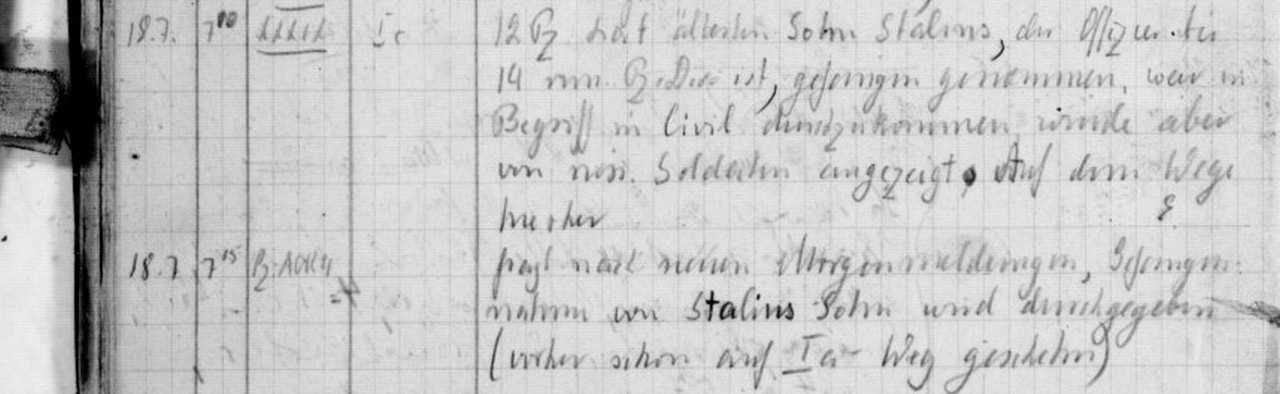 18.7. 7⁰⁰ XXXIX Ic 12 Pz hat ältesten Sohn Stalins, der Offizier bei
14 rus. Pz. Div. ist, gefangen genommen. war im
Begriff in Civil durchzukommen wurde aber
von russ. Soldaten angezeigt. Auf dem Wege
hierher
18.7 7¹⁵ Pz. AOK 4 fragt nach neuen Morgenmeldungen, Gefangen-
nahme von Stalins Sohn wird durchgegeben
(vorher schon auf Ia- Weg geschehen)